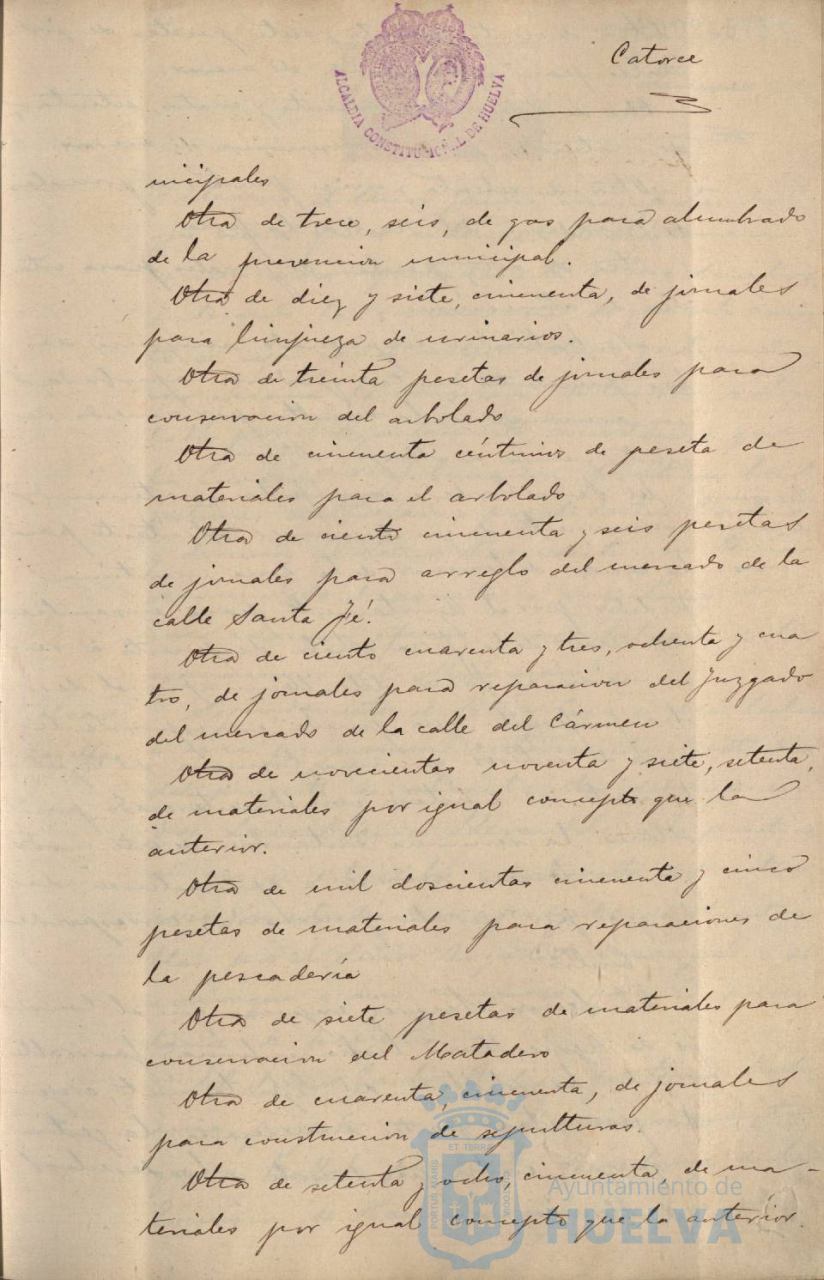 Catorce
ALCALDIA CONSTITUCIONAL DE HUELVA
nicipales
Otra de trece, seis, de gas para alumbrado
de la prevencion municipal.
Otra de diez y siete, cincuenta, de jornales
para limpieza de urinarios.
Otra de treinta pesetas de jornales para
conservacion del arbolado
Otra de cincuenta céntimos de peseta de
materiales para el arbolado
Otra de ciento cincuenta y seis pesetas
de jornales para arreglo del mercado de la
calle Santa Fé.
Otra de ciento cuarenta y tres, ochenta y cua
tro, de jornales para reparacion del Juzgado
del mercado de la calle del Cármen
Otra de novecientas noventa y siete, setenta,
de materiales por igual concepto que la
anterior.
Otra de mil doscientas cincuenta y cinco
pesetas de materiales para reparaciones de
la pescadería
Otra de siete pesetas de materiales para
conservacion del Matadero
Otra de cuarenta, cincuenta, de jornales
para construccion de sepulturas.
Otra de setenta y ocho, cincuenta, de ma-
teriales por igual concepto que la anterior.
Ayuntamiento de
HUELVA